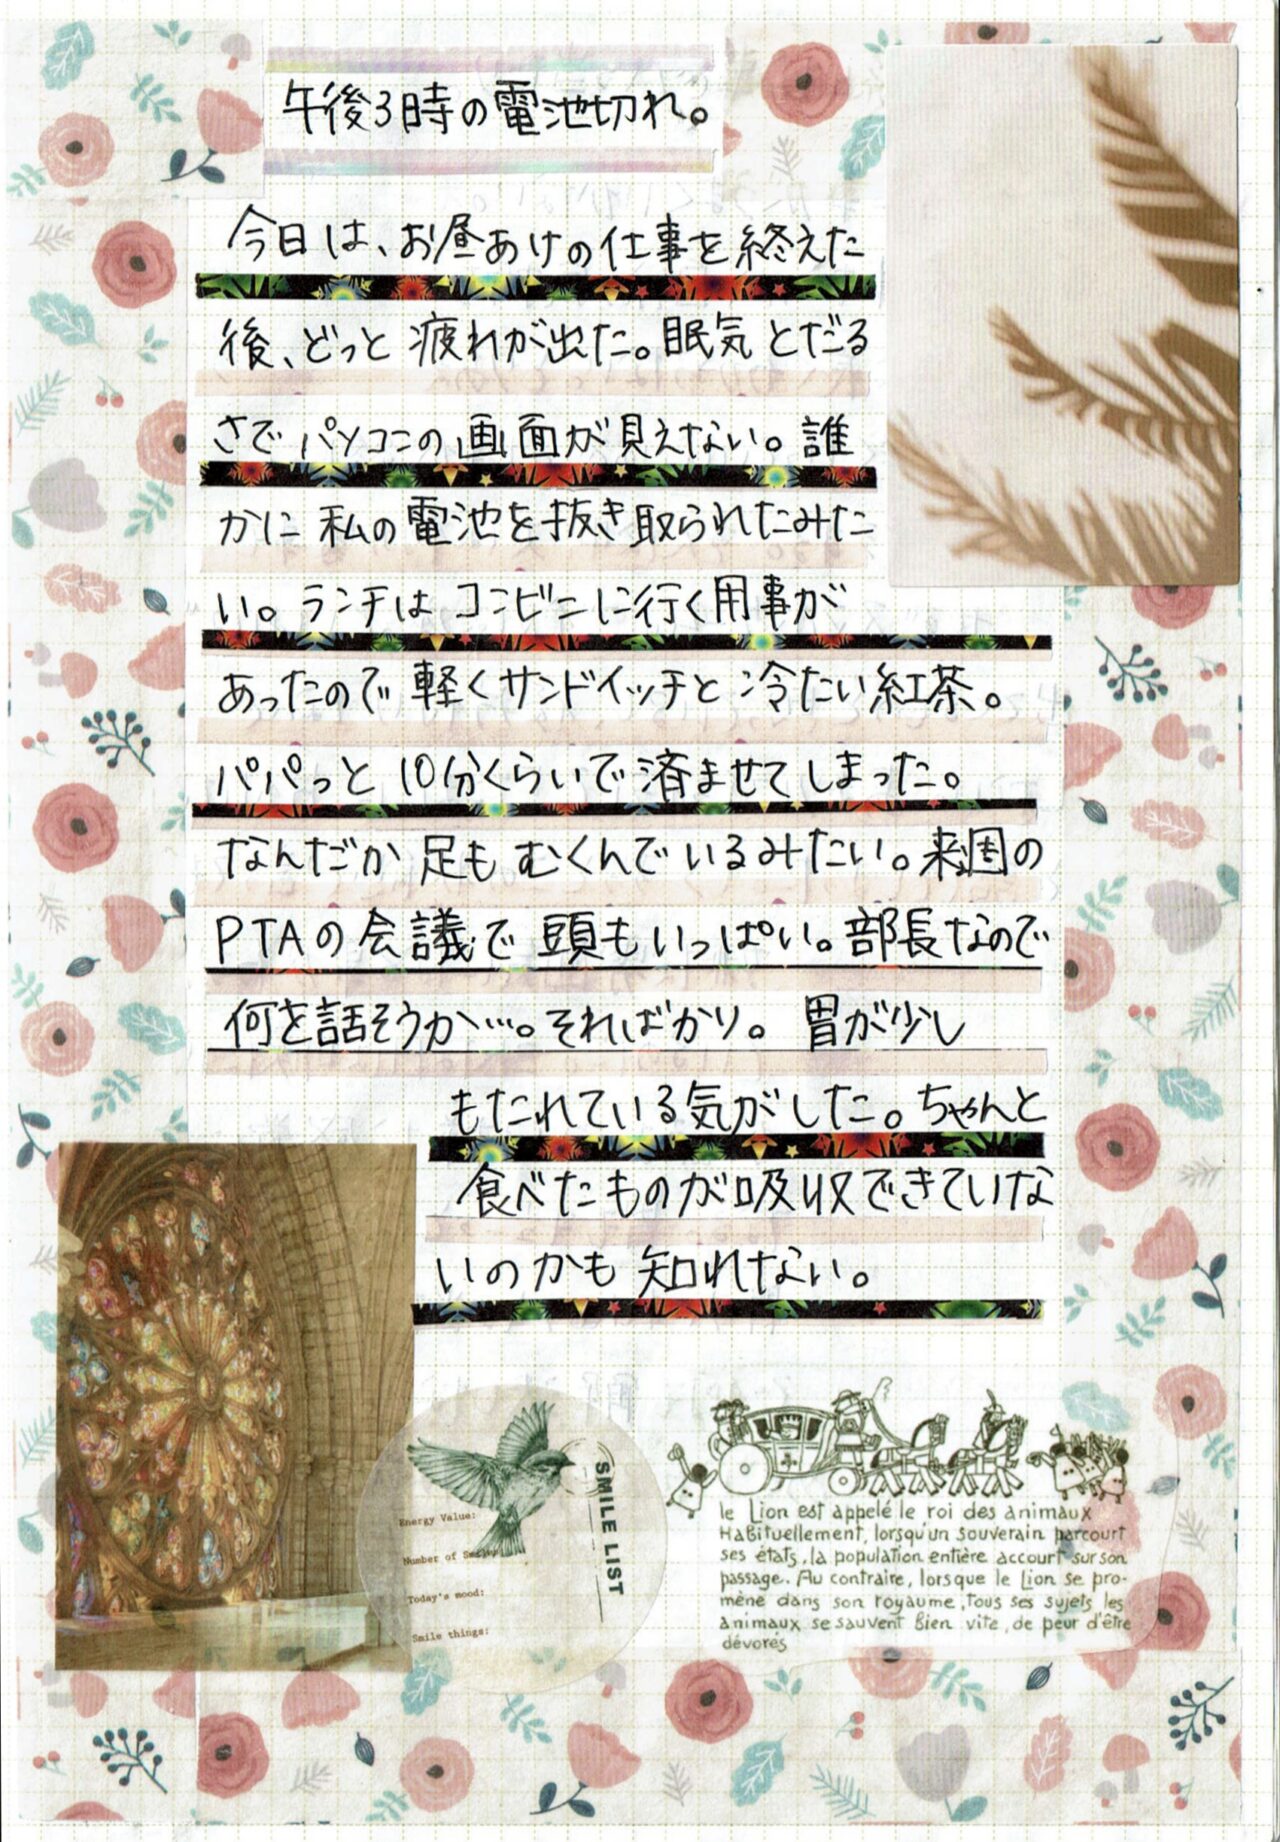 午後3時の電池切れ。
今日は、お昼あけの仕事を終えた
後、どっと疲れが出た。眠気とだる
さでパソコンの画面が見えない。誰
かに私の電池を抜き取られたみた
い。ランチはコンビニに行く用事が
あったので軽くサンドイッチと冷たい紅茶。
パパっと10分くらいで済ませてしまった。
なんだか足もむくんでいるみたい。来週の
PTAの会議で頭もいっぱい。部長なので
何を話そうか…。そればかり。胃が少し
もたれている気がした。ちゃんと
食べたものが吸収できていな
いのかも知れない。
SMILE LIST
Energy Value:
Number of Smiles:
Today's mood:
Smile things:
le Lion est appelé le roi des animaux
Habituellement, lorsqu'un souverain parcourt
ses états, la population entière accourt sur son
passage. Au contraire, lorsque le Lion se pro-
mène dans son royaume, tous ses sujets les
animaux se sauvent bien vite, de peur d'être
dévorés